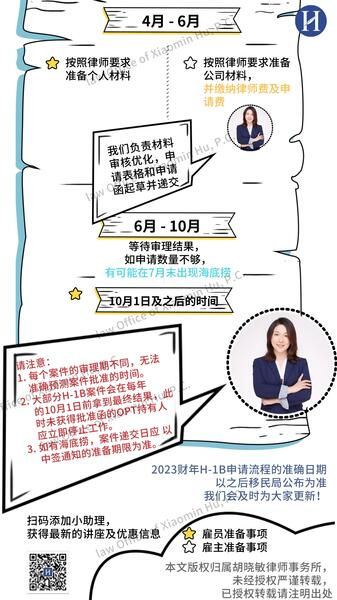 4月 - 6月
按照律师要求
准备个人材料
按照律师要求准备
公司材料,
并缴纳律师费及申
请费
我们负责材料
审核优化，申
请表格和申请
函起草并递交
6月 - 10月
等待审理结果,
如申请数量不够,
有可能在7月末出现海底捞
10月1日及之后的时间
请注意:
1. 每个案件的审理期不同，无法
准确预测案件批准的时间。
2. 大部分H-1B案件会在每年
的10月1日前拿到最终结果，此
时未获得批准函的OPT持有人
应立即停止工作。
3. 如有海底捞，案件递交日应 以
中签通知的准备期限为准。
2023财年H-1B申请流程的准确日期
以之后移民局公布为准
我们会及时为大家更新！
扫码添加小助理,
获得最新的讲座及优惠信息
雇员准备事项
雇主准备事项
本文版权归属胡晓敏律师事务所,
未经授权严谨转载,
已授权转载请注明出处
law Office of Xiaomin Hu, P.C.
law Office of Xiaomin Hu, P.C.
law Office of Xiaomin Hu, P.C.